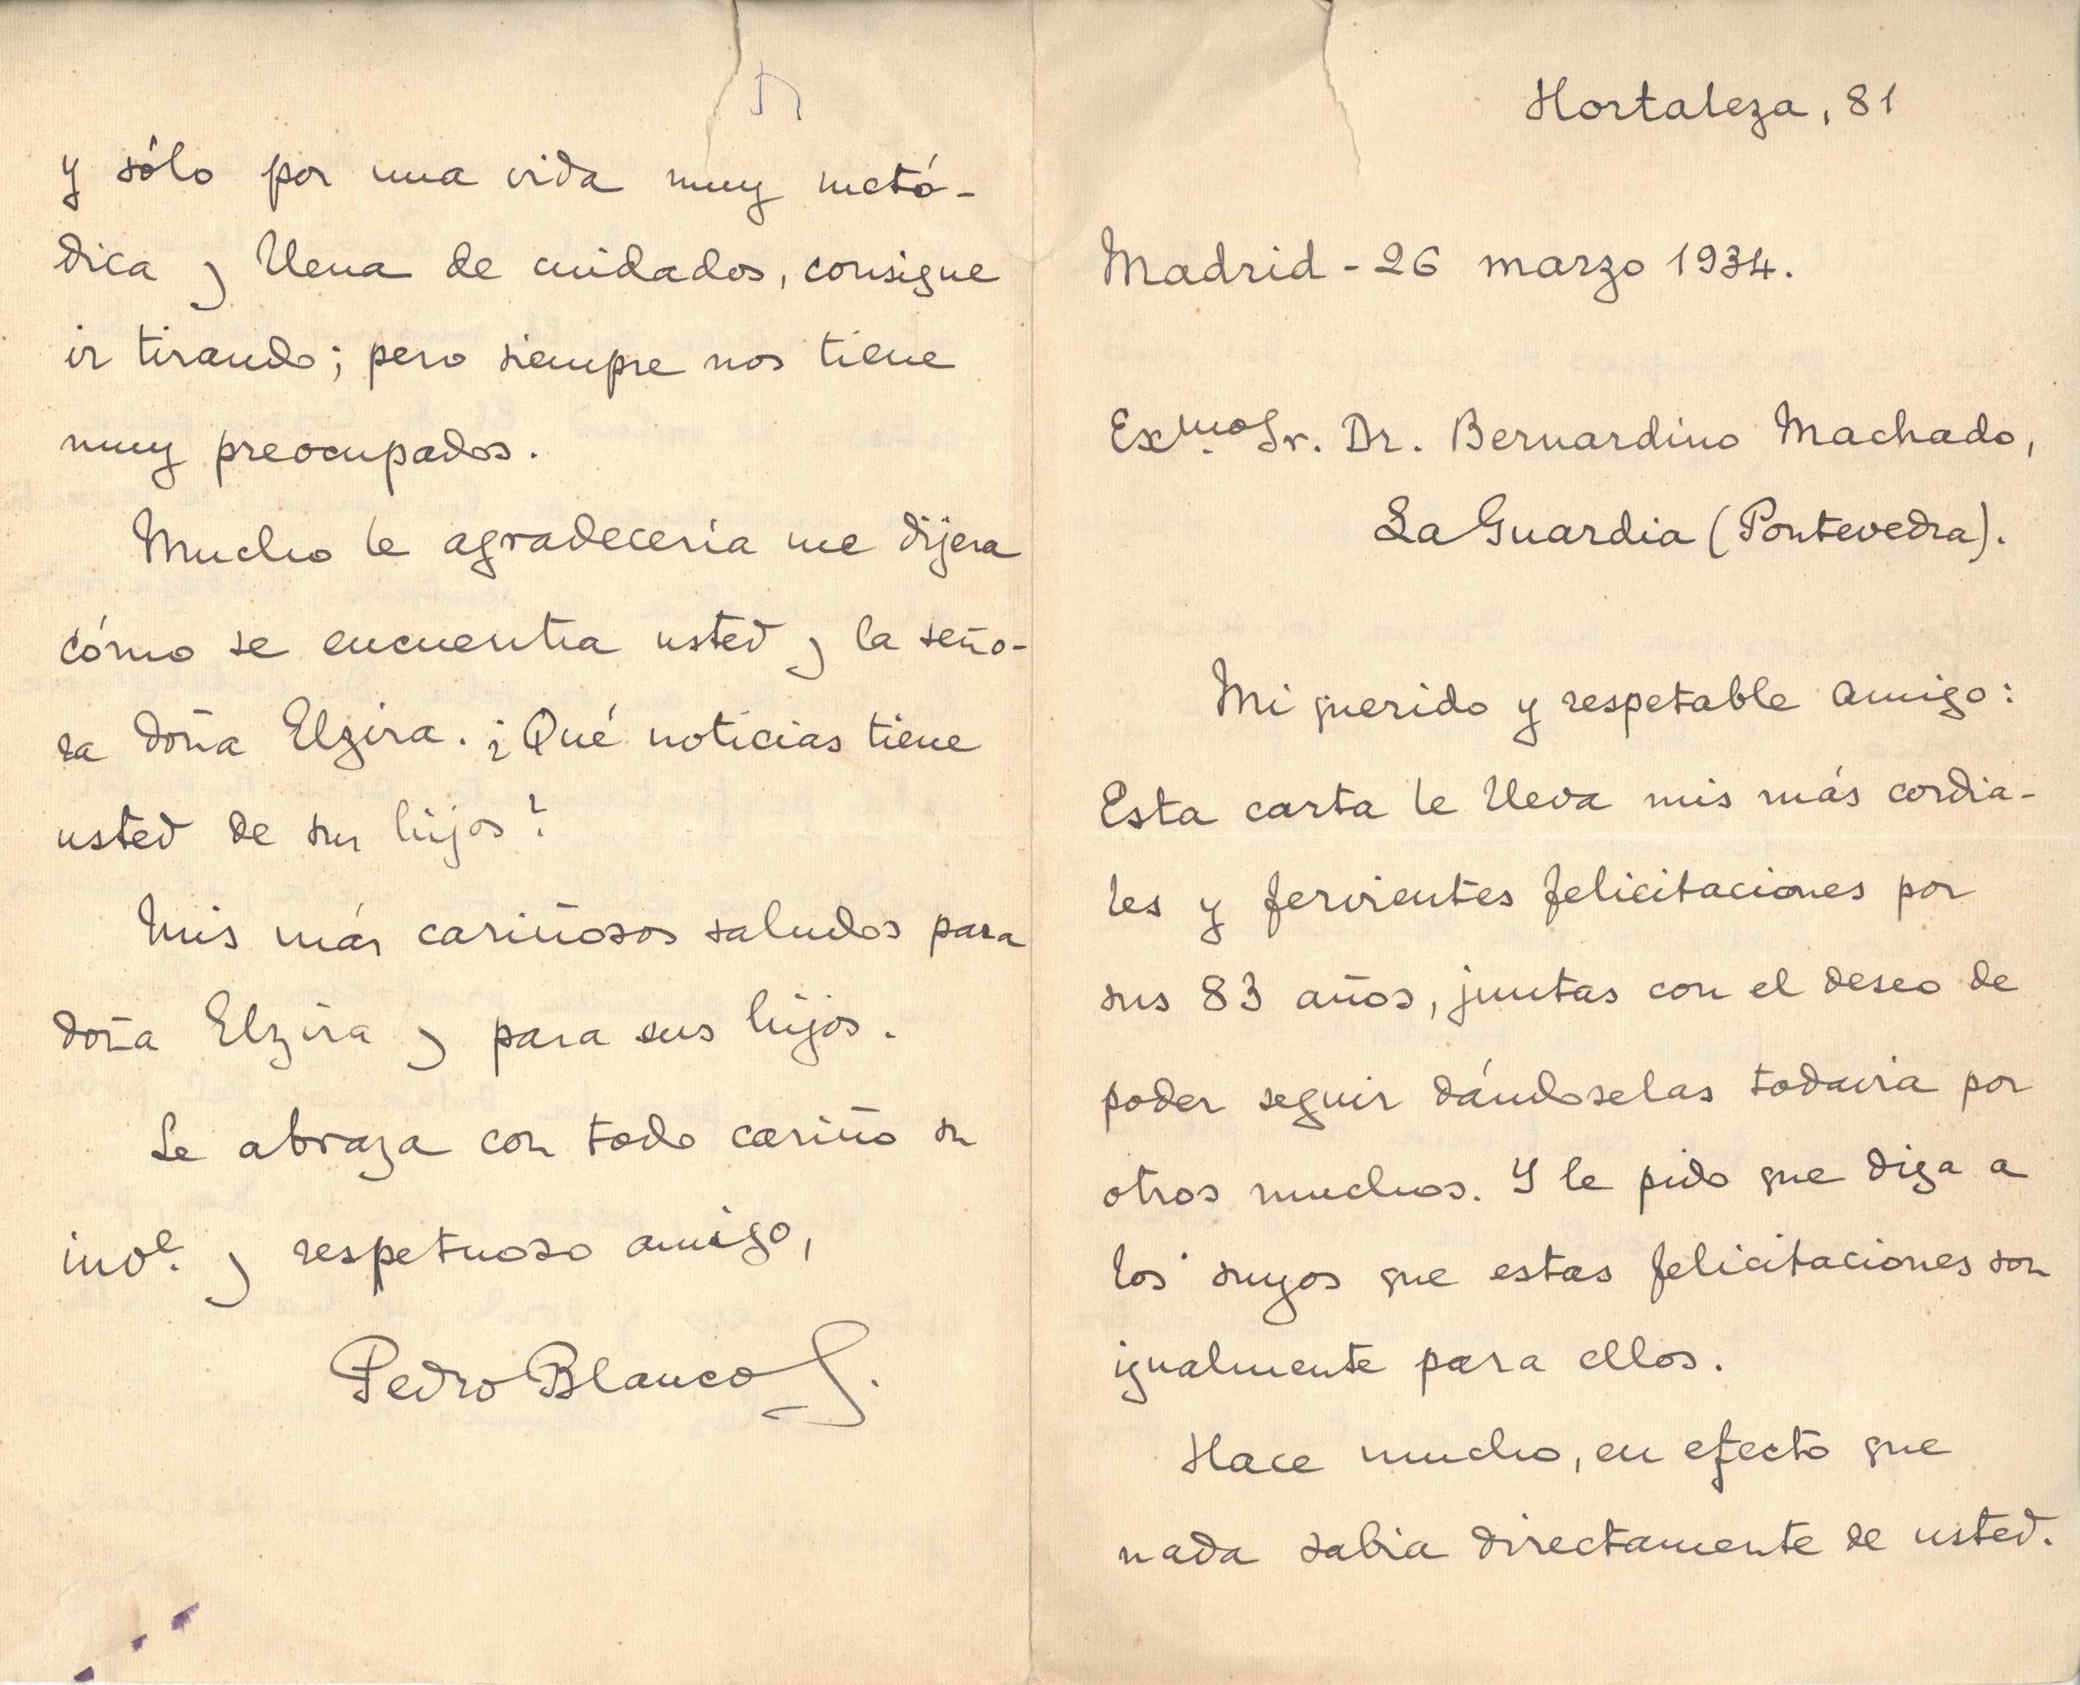 Hortaleza, 81
Madrid - 26 marzo 1934.
Exmo. Sr. Dr. Bernardino Machado,
La Guardia (Pontevedra).
Mi querido y respetable amigo:
Esta carta le lleva mis más cordia-
les y fervientes felicitaciones por
sus 83 años, juntas con el deseo de
poder seguir dándoselas todavia por
otros muchos. Y le pido que diga a
los suyos que estas felicitaciones son
igualmente para ellos.
Hace mucho, en efecto que
nada sabia directamente de usted.
y sólo por una vida muy metó-
dica y llena de cuidados, consigue
ir tirando; pero siempre nos tiene
muy preocupados.
Mucho le agradecería me dijera
cómo se encuentra usted y la seño-
ra doña Elzira. ¿Qué noticias tiene
usted de sus hijos?
Mis más cariñosos saludos para
doña Elzira y para sus hijos.
Le abraza con todo cariño su
invе. y respetuoso amigo,
Pedro Blanco S.